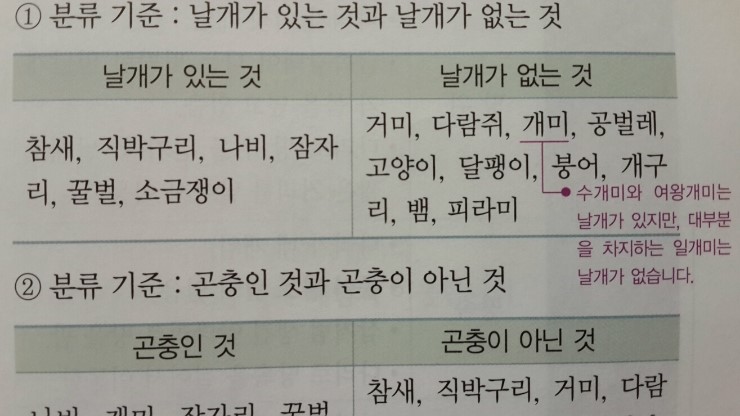 ① 분류 기준 : 날개가 있는 것과 날개가 없는 것
날개가 있는 것
날개가 없는 것
참새, 직박구리, 나비, 잠자
리, 꿀벌, 소금쟁이
거미, 다람쥐, 개미, 공벌레,
고양이, 달팽이, 붕어, 개구
리, 뱀, 피라미
수개미와 여왕개미는
날개가 있지만, 대부분
을 차지하는 일개미는
날개가 없습니다.
② 분류 기준 : 곤충인 것과 곤충이 아닌 것
곤충인 것
곤충이 아닌 것
나비, 개미, 잠자리, 꿀벌
참새, 직박구리, 거미, 다람